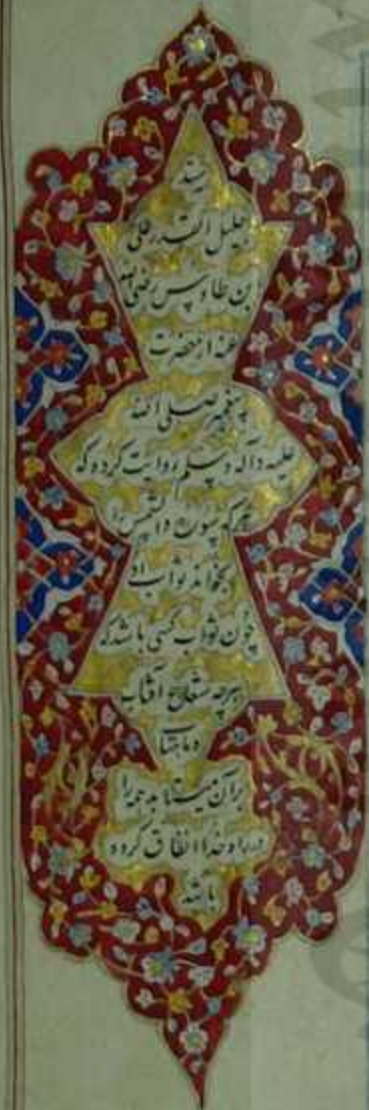 سید
جلیل القدر علی
ابن طاوس رضی الله
عنه از حضرت
پیغمبر صلی الله
علیه و آله وسلم روایت کرده که
هر که سوره والشمس را
بخواند ثواب او
چون ثواب کسی باشد که
بهرچه شعاع آفتاب
و ماهتاب
بر آن میتابد همه را
در راه خدا انفاق کرده
باشد